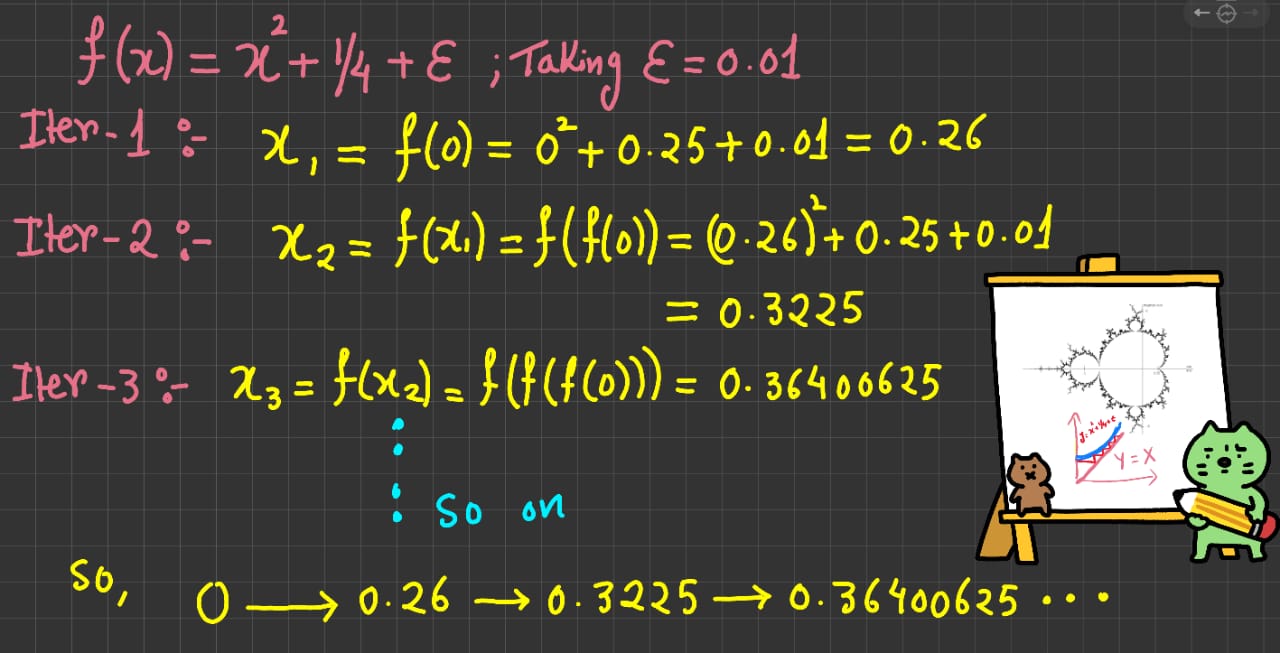 f(x) = x² + 1/4 + ε ; Taking ε = 0.01
Iter-1 :- x₁ = f(0) = 0² + 0.25 + 0.01 = 0.26
Iter-2 :- x₂ = f(x₁) = f(f(0)) = (0.26)² + 0.25 + 0.01
= 0.3225
Iter-3 :- x₃ = f(x₂) = f(f(f(0))) = 0.36400625
y = x² + 1/4 + ε
Y = X
⋮ so on
so, 0 → 0.26 → 0.3225 → 0.36400625 ...